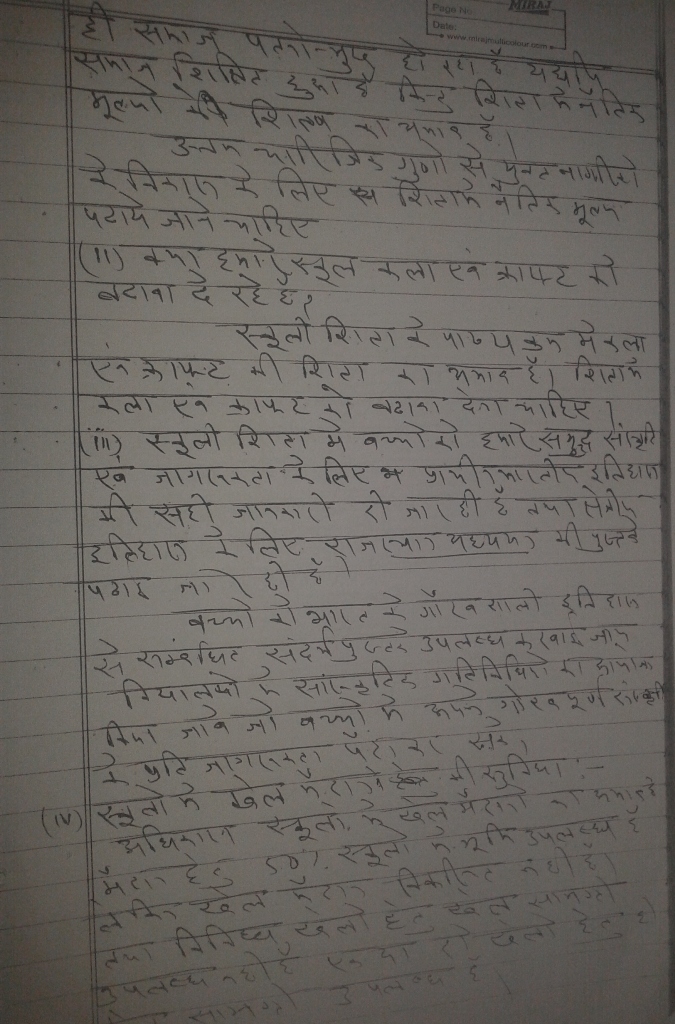 Page No:
MIRAJ
Date:
www.mirajmulticolour.com
ही समाज पतनो-मुख हो रहा है यद्यपि
समाज शिक्षित हुआ है किन्तु शिक्षा में नैतिक
मूल्यों की शिक्षा का अभाव है।
उत्तम चारित्रिक गुणों से युक्त नागरिको
के विकास के लिए शिक्षा में नैतिक मूल्य
पढाये जाने चाहिए
(ii) क्या हमारे स्कूल कला एवं क्राफ्ट को
बढावा दे रहे है?
स्कूली शिक्षा के पाठ्य क्रम में कला
एवं क्राफ्ट की शिक्षा का अभाव है। शिक्षा में
कला एवं क्राफ्ट को बढावा देना चाहिए।
(iii) स्कूली शिक्षा में बच्चों को हमारे समृद्ध संस्कृति
एवं जागरूकता के लिए प्राचीन भारतीय इतिहास
की सही जानकारी दी जा रही है तथा क्षेत्रीय
इतिहास के लिए राजस्थान अध्ययन की पुस्तके
पढाई जा रही है।
बच्चों को भारत के गौरवशाली इतिहास
से सम्बन्धित संदर्भ पुस्तके उपलब्ध करवाई जाय
विद्यालयों में सांस्कृतिक गतिविधियों का
किया जावे जो बच्चों में अपनी गौरवपूर्ण संस्कृति
के प्रति जागरूकता पैदा कर सके।
(iv) स्कूलों में खेल मैदानों की सुविधा :-
अधिकांश स्कूलों में खेल मैदानों का अभाव है
मैदान हेतु 50% स्कूलों में भूमि उपलब्ध है
लेकिन खेल मैदान विकसित नहीं है।
तथा विभिन्न खेलों हेतु खेल सामग्री
उपलब्ध नहीं है एक या दो खेलों हेतु ही
सामग्री उपलब्ध है।